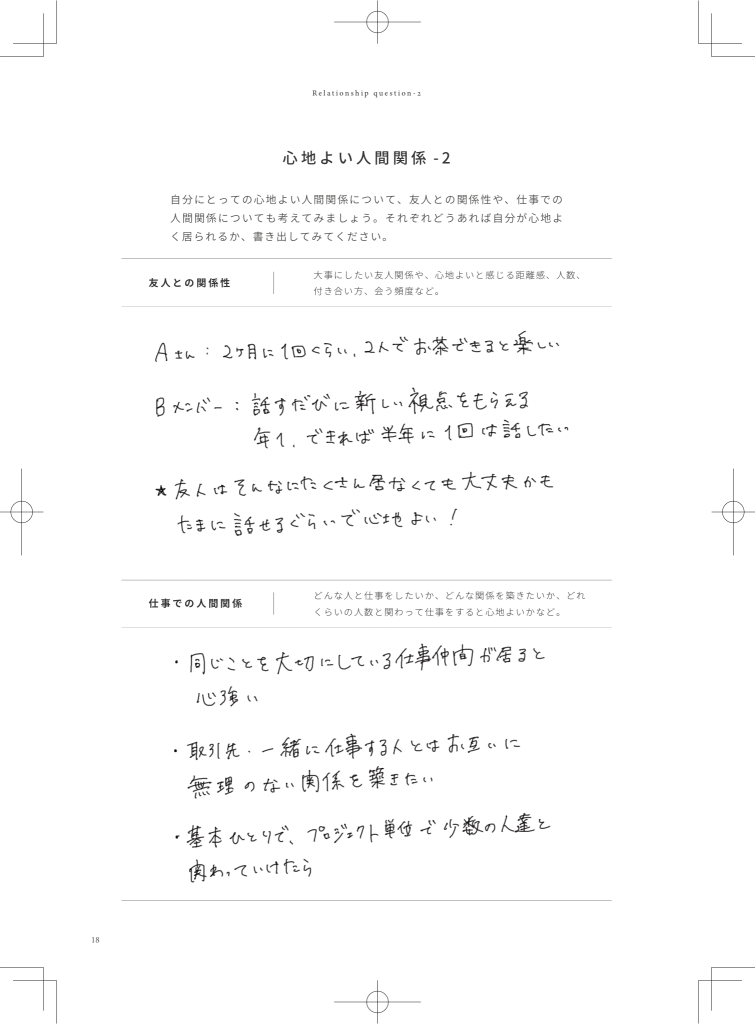 Relationship question-2
心地よい人間関係 -2
自分にとっての心地よい人間関係について、友人との関係性や、仕事での
人間関係についても考えてみましょう。それぞれどうあれば自分が心地よ
く居られるか、書き出してみてください。
友人との関係性
大事にしたい友人関係や、心地よいと感じる距離感、人数、
付き合い方、会う頻度など。
Aさん：2ヶ月に1回くらい、2人でお茶できると楽しい
Bメンバー：話すたびに新しい視点をもらえる
年1、できれば半年に1回は話したい
★友人はそんなにたくさん居なくても大丈夫かも
たまに話せるぐらいで心地よい！
仕事での人間関係
どんな人と仕事をしたいか、どんな関係を築きたいか、どれ
くらいの人数と関わって仕事をすると心地よいかなど。
・同じことを大切にしている仕事仲間が居ると
心強い
・取引先・一緒に仕事する人とはお互いに
無理のない関係を築きたい
・基本ひとりで、プロジェクト単位で少数の人達と
関わっていけたら
18